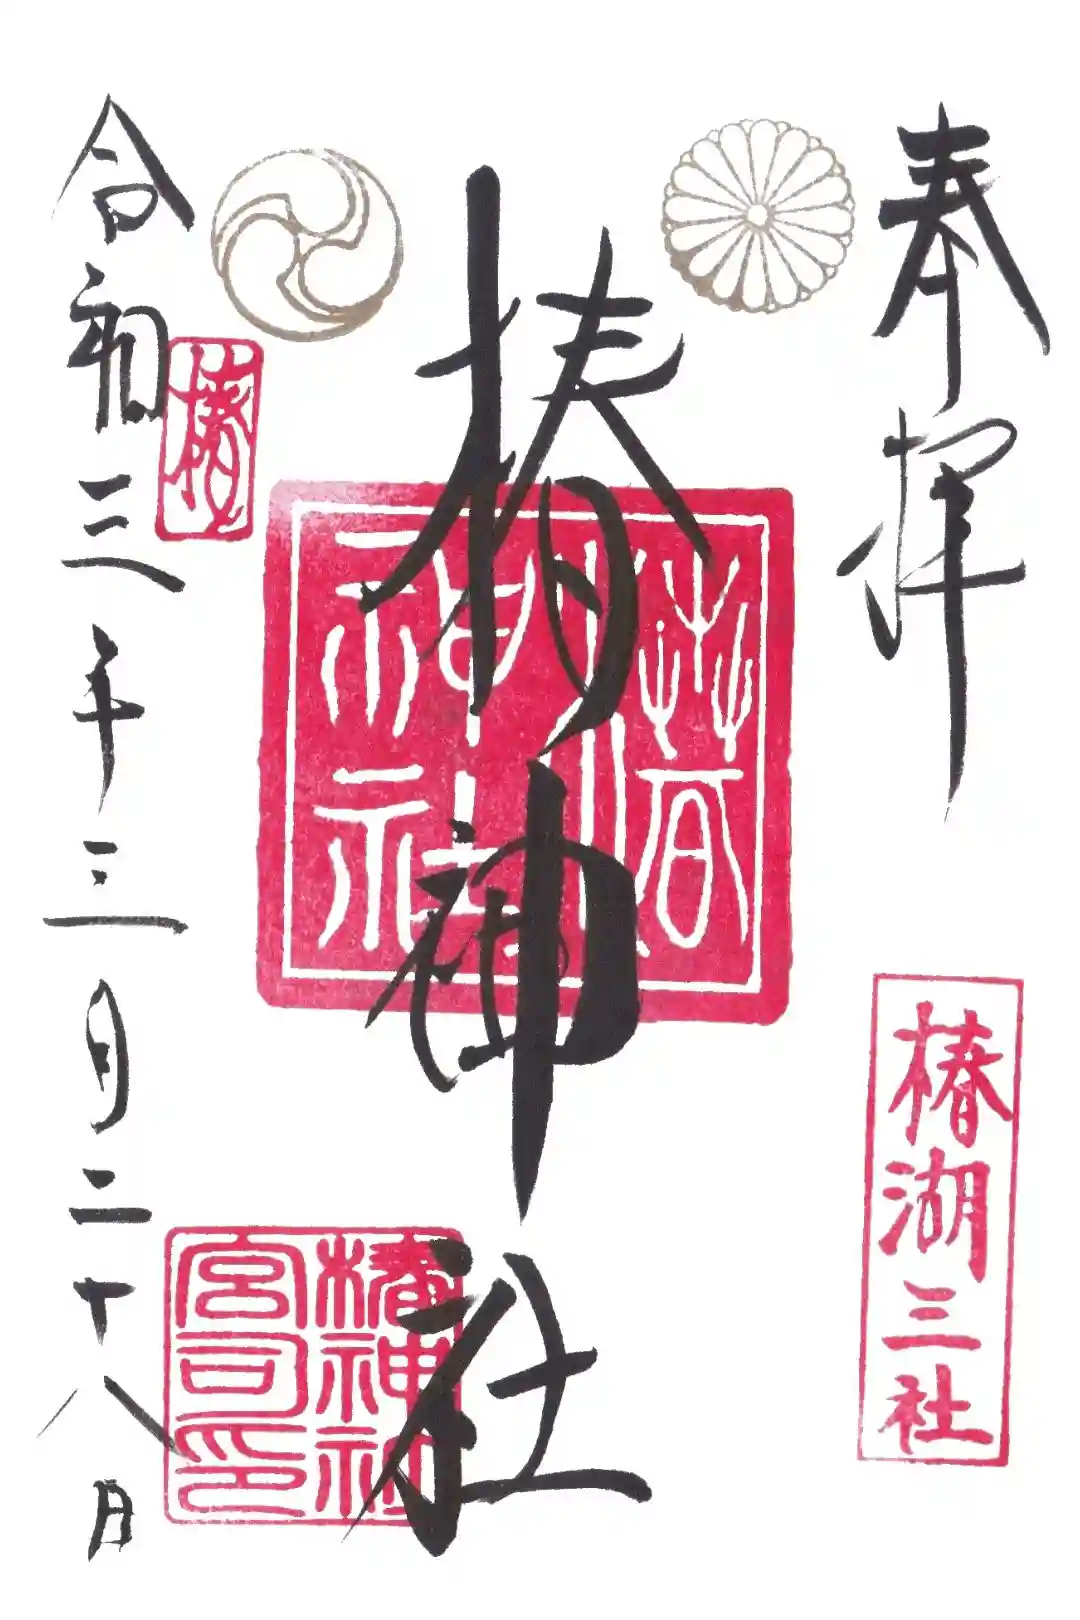 奉拝
椿湖三社
椿神社
椿神社
椿神社
宮司印
椿
令和三年三月二十八日